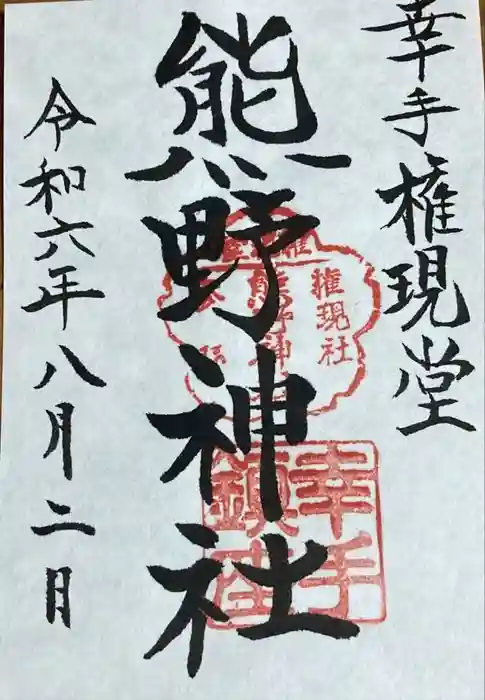 幸手権現堂
熊野神社
令和六年八月二日
権現社
熊野神
幸手
鎮座